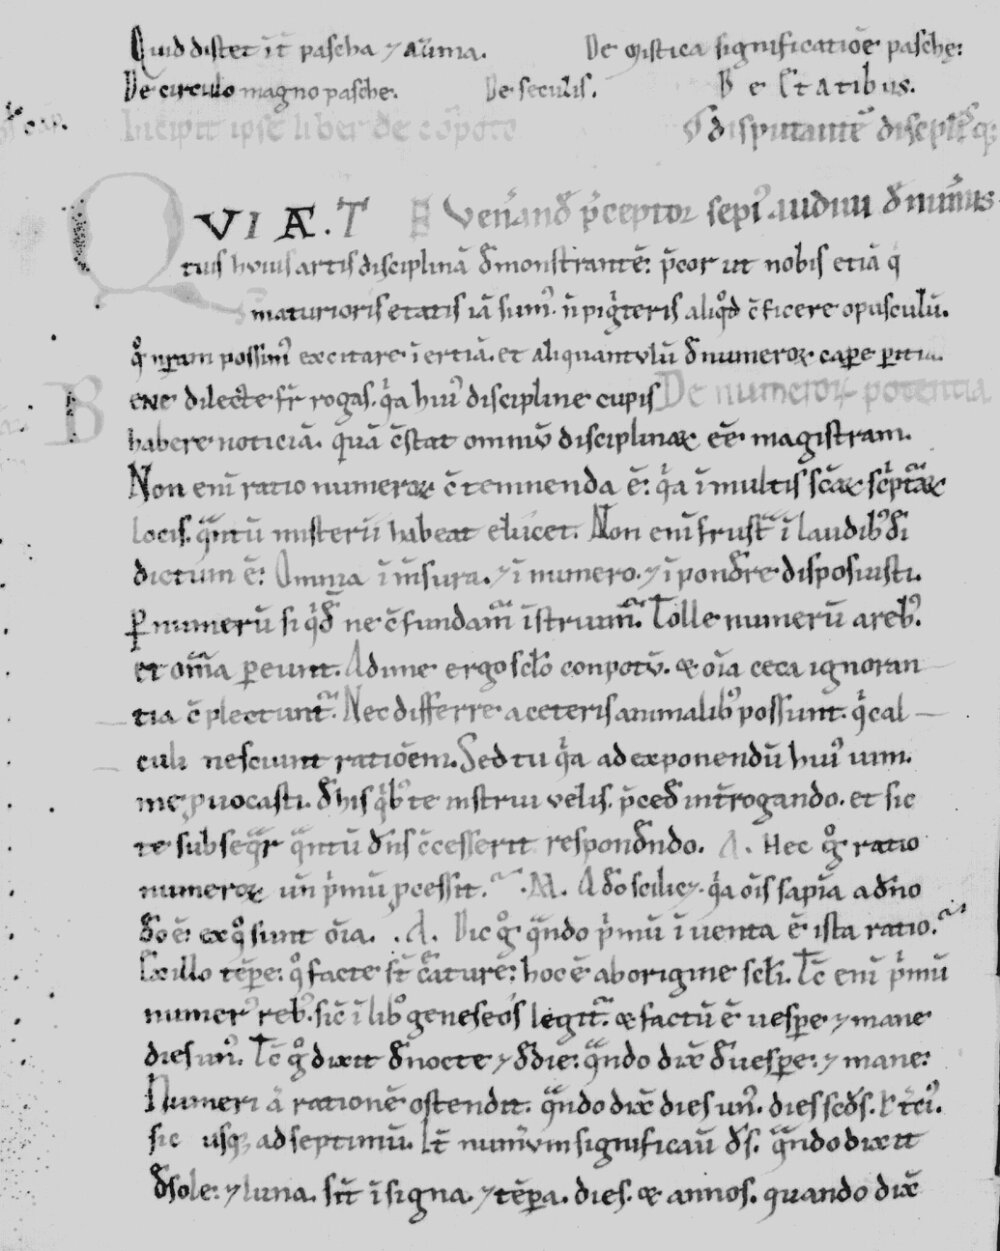 Quid distet int̄ pascha ⁊ aẑima. De mistica significatiōe paschę:
De circulo magno pasche. De seculis. De Etatibus.
Incipit ipse liber de cōpoto disputantē
QVIA.T Ven̄and̄ p̄ceptor sepi᾽ audiui d̄ num̄is
tuis huius artis disciplinā d̄monstrantē: p̄cor ut nobis etiā q
maturioris etatis iā sum᾽. n̄ pigͥteris aliqͦd c̄ficere opusculū.
qͦ nr̄am possim᾽ excitare īertiā. et aliquantulū d̄ numeroꝝ cap̲e p̲itia.
Bene dilecte fr̄ rogas. qͥa hui᾽ discipline cupis De numeroꝝ potentia
habere noticiā. quā c̄stat omniū disciplinaꝝ eē magistram.
Non eni ratio numeroꝝ c̄temnenda ē: qͥa ī multis scāꝝ scͥptᵃꝝ
locis. qᵃntū misterii habeat elucet. Non eni frustᵃ ī laudibꝰ dī
dictum ē: Omnia ī m̄sura. ⁊ ī numero. ⁊ ī pond̄re disposuisti.
ꝑ numerū si qͥd̄ ne c̄fundamͬ īstruimͬ. Tolle numerū a rebꝰ.
et om̄ia p̲eunt. Adime ergo sclō conpotū. & oīa ceca ignoran
tia c̄plectuntͬ. Nec differre a ceteris animalibꝰ possunt. qͥ cal
culi nesciunt ratiōem. Sed tu qͥa ad exponendū hui᾽ uim.
me ꝓuocasti. d̄ his qͥbꝰ te instrui velis. p̄ced̄ int̄rogando. et sic
te subseqᵃr qᵃntū dn̄s c̄cesserit respond̄ndo. Δ. Hec gͦ ratio
numeroꝝ un̄ pͥmū ꝓcessit. M. A dō scilic&. qͥa oīs sapīa a dn̄o
dō ē: ex qͦ sunt oīa. .Δ. Dic gͦ qᵃndo pͥmū īuenta ē ista ratio.
Ex illo tēp̲e: qͦ facte st̄ cͬature: hoc ē ab origine scli. Tc̄ eni pͥmū
numer᾽ rebꝰ. sic̄ ī libͦ geneseos legitͬ. & factū ē uesp̲e ⁊ mane
dies un᾽. Tc̄ gͦ dixit d̄ nocte ⁊ d̄ die: qᵃndo dix̄ d̄ uesp̲e: ⁊ mane:
Numeri ā rationē ostendit. qᵃndo dix̄ dies un᾽. dies scd̄s. & tci᾽.
sic usq; ad septimū. It̄ num̄um significauͫ ds̄. qᵃndo dixit
d̄ sole: ⁊ luna. sīt ī signa. ⁊ tēp̲a. dies. & annos. quando dix̄